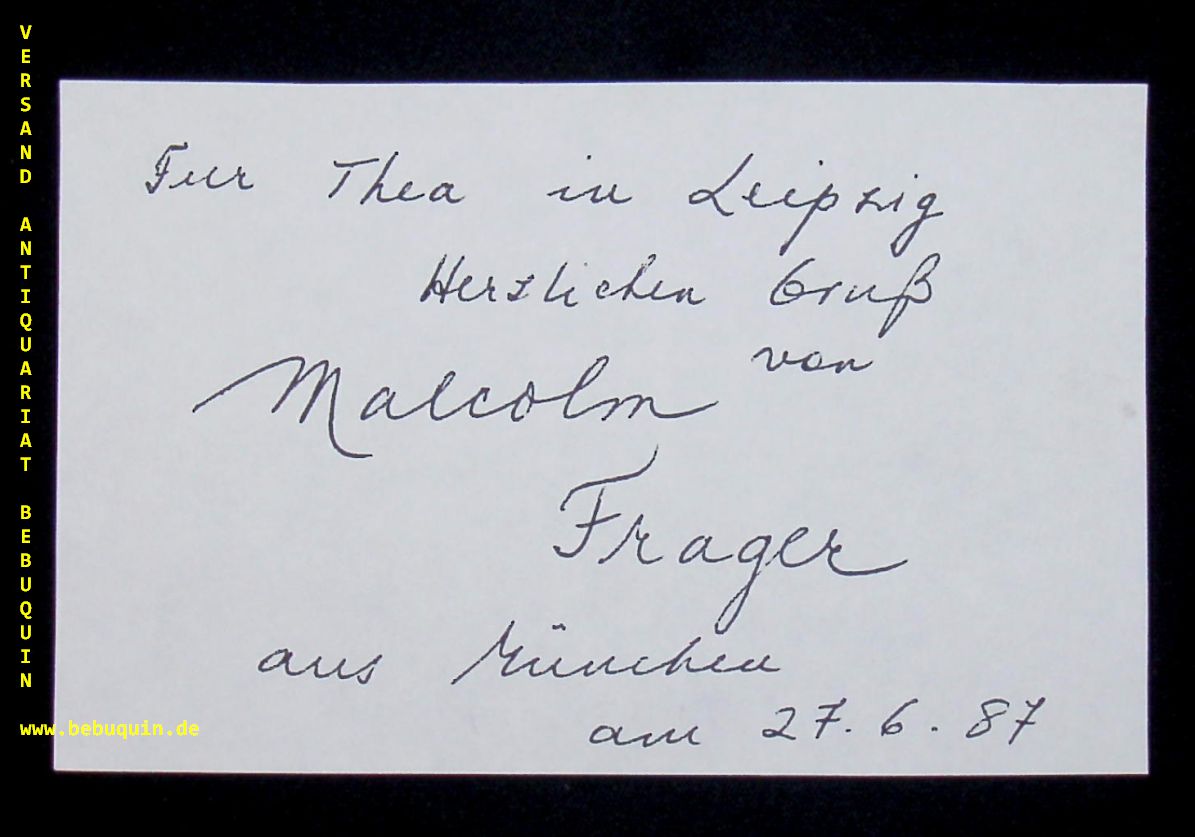 VERSAND ANTIQUARIAT BEBUQUIN
www.bebuquin.de
Fur Thea in Leipzig
Herzlichen Gruß
von
Malcolm
Frager
aus München
am 27. 6. 87